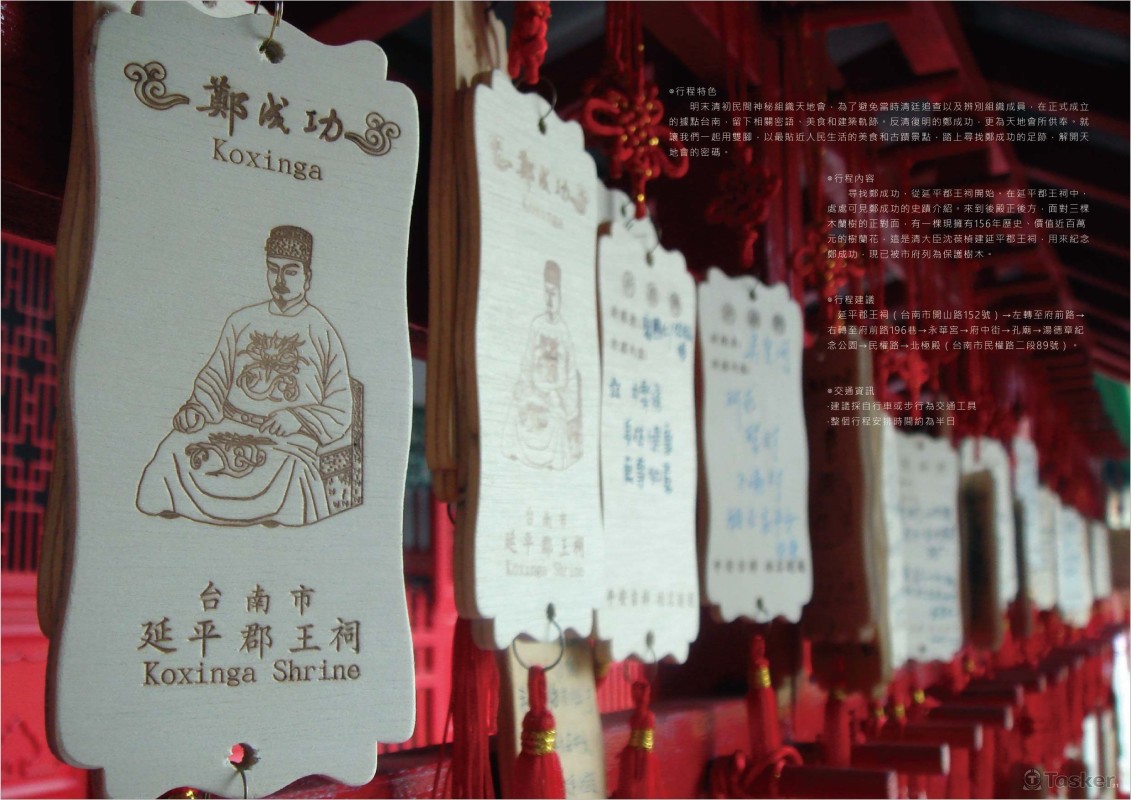 鄭成功
Koxinga
台南市
延平郡王祠
Koxinga Shrine
鄭成功
Koxinga
台南市
延平郡王祠
Koxinga Shrine
●行程特色
明末清初民間神秘組織天地會，為了避免當時清廷追查以及辨別組織成員，在正式成立
的據點台南，留下相關密語、美食和建築軌跡。反清復明的鄭成功，更為天地會所供奉。就
讓我們一起用雙腳，以最貼近人民生活的美食和古蹟景點，踏上尋找鄭成功的足跡，解開天
地會的密碼。
●行程內容
尋找鄭成功，從延平郡王祠開始。在延平郡王祠中，
處處可見鄭成功的史蹟介紹。來到後殿正後方，面對三棵
木蘭樹的正對面，有一棵現擁有156年歷史、價值近百萬
元的樹蘭花。這是清大臣沈葆楨建延平郡王祠，用來紀念
鄭成功，現已被市府列為保護樹木。
●行程建議
延平郡王祠（台南市開山路152號）→左轉至府前路→
右轉至府前路196巷→永華宮→府中街→孔廟→湯德章紀
念公園→民權路→北極殿（台南市民權路二段89號）。
●交通資訊
·建議採自行車或步行為交通工具
·整個行程安排時間約為半日
Tasker